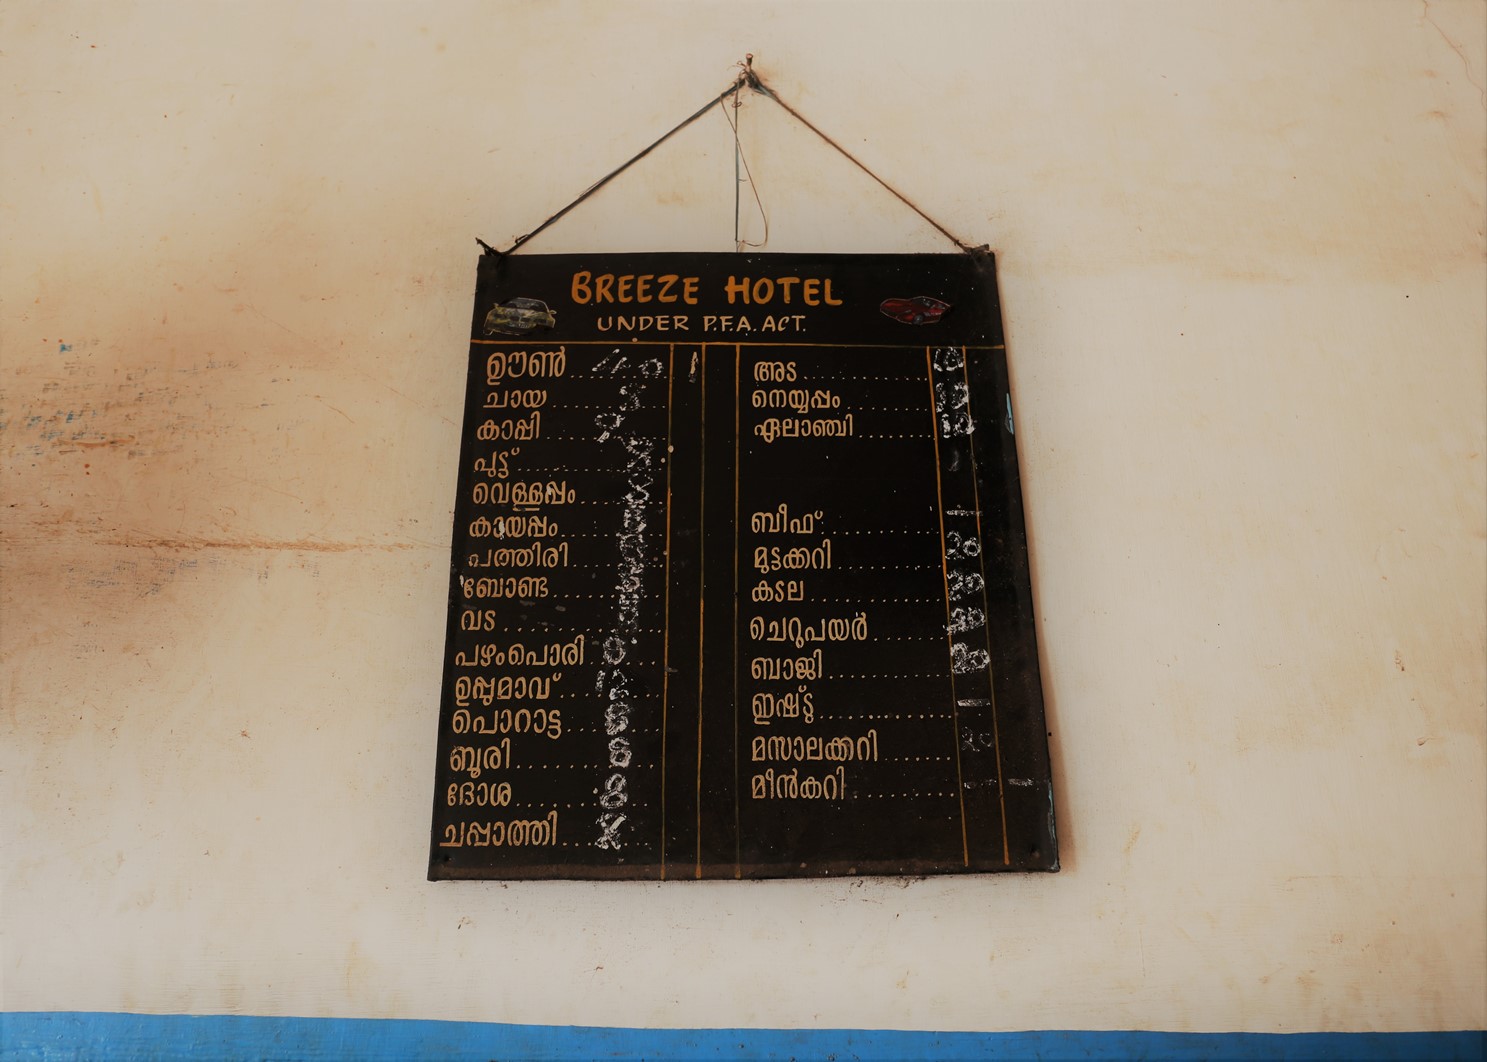 BREEZE HOTEL
UNDER P.F.A. ACT.
ഊൺ
ചായ
കാപ്പി
പുട്ട്
വെള്ളപ്പം
കായപ്പം
പത്തിരി
ബോണ്ട
വട
പഴംപൊരി
ഉപ്പുമാവ്
പൊറാട്ട
ബൂരി
ദോശ 8
ചപ്പാത്തി
അട
നെയ്യപ്പം
ഏലാഞ്ചി
ബീഫ്
മുട്ടക്കറി 20
കടല
ചെറുപയർ
ബാജി 20
ഇഷ്ടു
മസാലക്കറി 20
മീൻകറി